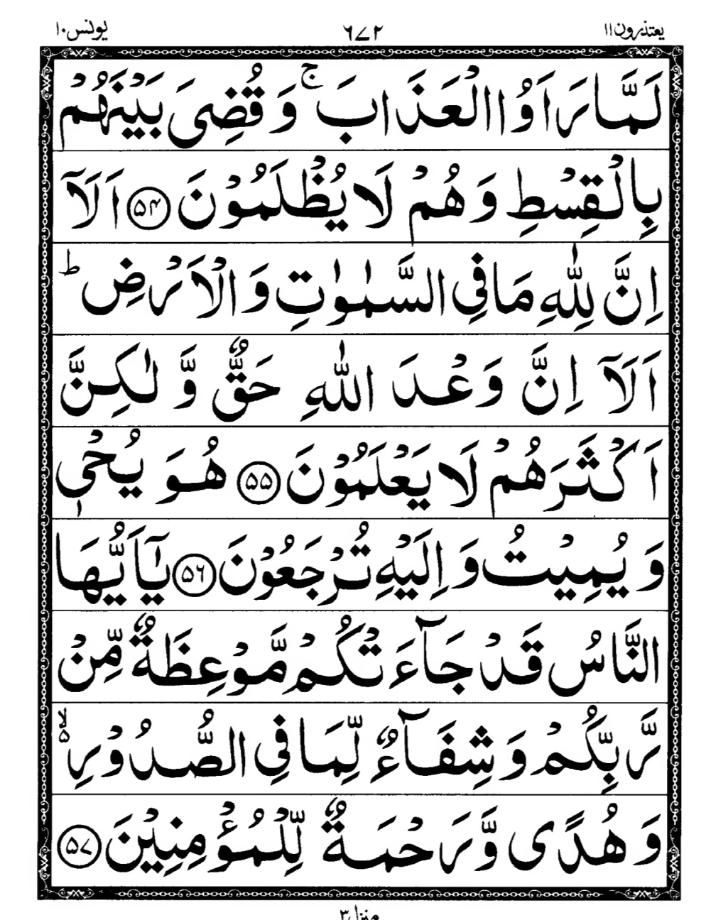 یعتذرون۱۱ ۶۷۲ یونس۱۰
لَمَّا رَاَوُا الْعَذَابَ ۚ وَقُضِیَ بَیْنَهُمْ
بِالْقِسْطِ وَهُمْ لَا یُظْلَمُوْنَ ﴿۵۴﴾ اَلَاۤ
اِنَّ لِلّٰهِ مَا فِی السَّمٰوٰتِ وَالْاَرْضِ ؕ
اَلَاۤ اِنَّ وَعْدَ اللّٰهِ حَقٌّ وَّ لٰکِنَّ
اَکْثَرَهُمْ لَا یَعْلَمُوْنَ ﴿۵۵﴾ هُوَ یُحْیٖ
وَ یُمِیْتُ وَ اِلَیْهِ تُرْجَعُوْنَ ﴿۵۶﴾ یٰۤاَیُّهَا
النَّاسُ قَدْ جَآءَتْکُمْ مَّوْعِظَةٌ مِّنْ
رَّبِّکُمْ وَ شِفَآءٌ لِّمَا فِی الصُّدُوْرِ ۙ۬
وَ هُدًی وَّ رَحْمَةٌ لِّلْمُؤْمِنِیْنَ ﴿۵۷﴾
منزل۳